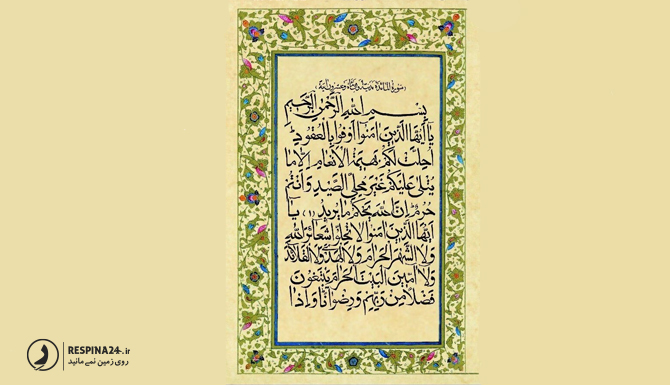 (سورة المائدة مدنية وهي مائة وعشرون آية)
بِسْمِ اللهِ الرَّحْمٰنِ الرَّحِيمِ
يَا أَيُّهَا الَّذِينَ اٰمَنُوا أَوْفُوا بِالْعُقُودِ
أُحِلَّتْ لَكُمْ بَهِيمَةُ الْأَنْعَامِ إِلَّا مَا
يُتْلَى عَلَيْكُمْ غَيْرَ مُحِلِّي الصَّيْدِ وَأَنْتُمْ
حُرُمٌ إِنَّ اللهَ يَحْكُمُ مَا يُرِيدُ (١) يَا
أَيُّهَا الَّذِينَ اٰمَنُوا لَا تُحِلُّوا شَعَائِرَ اللهِ
وَلَا الشَّهْرَ الْحَرَامَ وَلَا الْهَدْيَ وَلَا الْقَلَائِدَ
وَلَا اٰمِّينَ الْبَيْتَ الْحَرَامَ يَبْتَغُونَ
فَضْلًا مِنْ رَبِّهِمْ وَرِضْوَانًا وَإِذَا
RESPINA24.ir
روی زمین نمی‌مانید